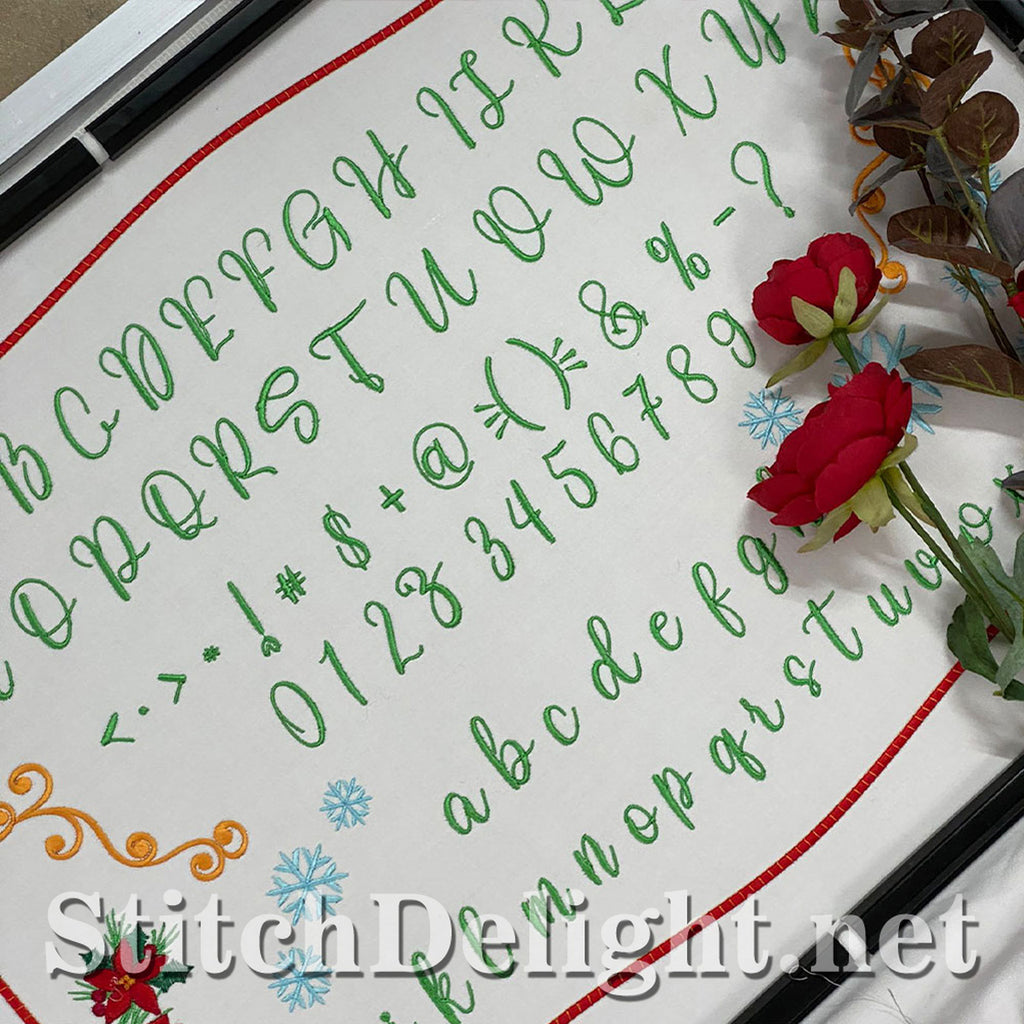 B C D E F G H I J K
O P Q R S T U V W X Y
< . > * ! # $ + @ ( ) & % - ?
0 1 2 3 4 5 6 7 8 9
a b c d e f g
k l m n o p q r s t u v
StitchDelight.net